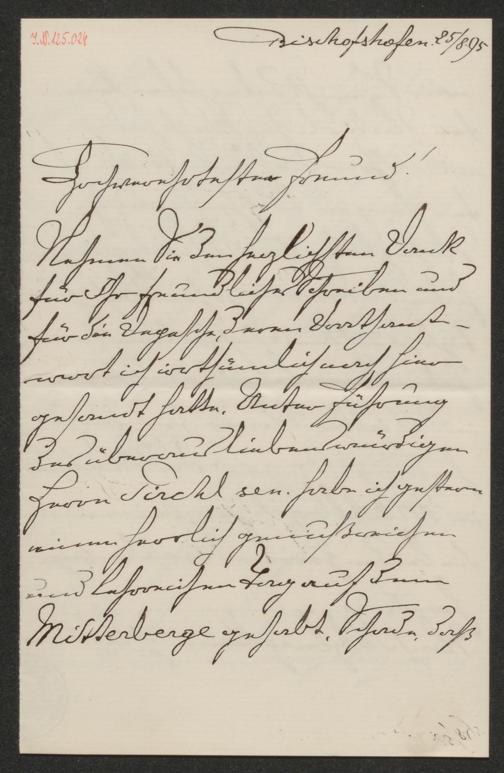 I.N. 125.024
Bischofshofen 25/8 95
Hochverehrtester Freund!
Nehmen Sie den herzlichsten Dank
für Ihr freundliches Schreiben und
für die Depesche, deren
ich irrthümlich nach hier
gesandt hatte. Unter Führung
des überaus liebenswürdigen
Herrn Pirchl sen. habe ich gestern
einen herrlich genußreichen
und lehrreichen Tag auf dem
Mitterberge gehabt. Schade, daß